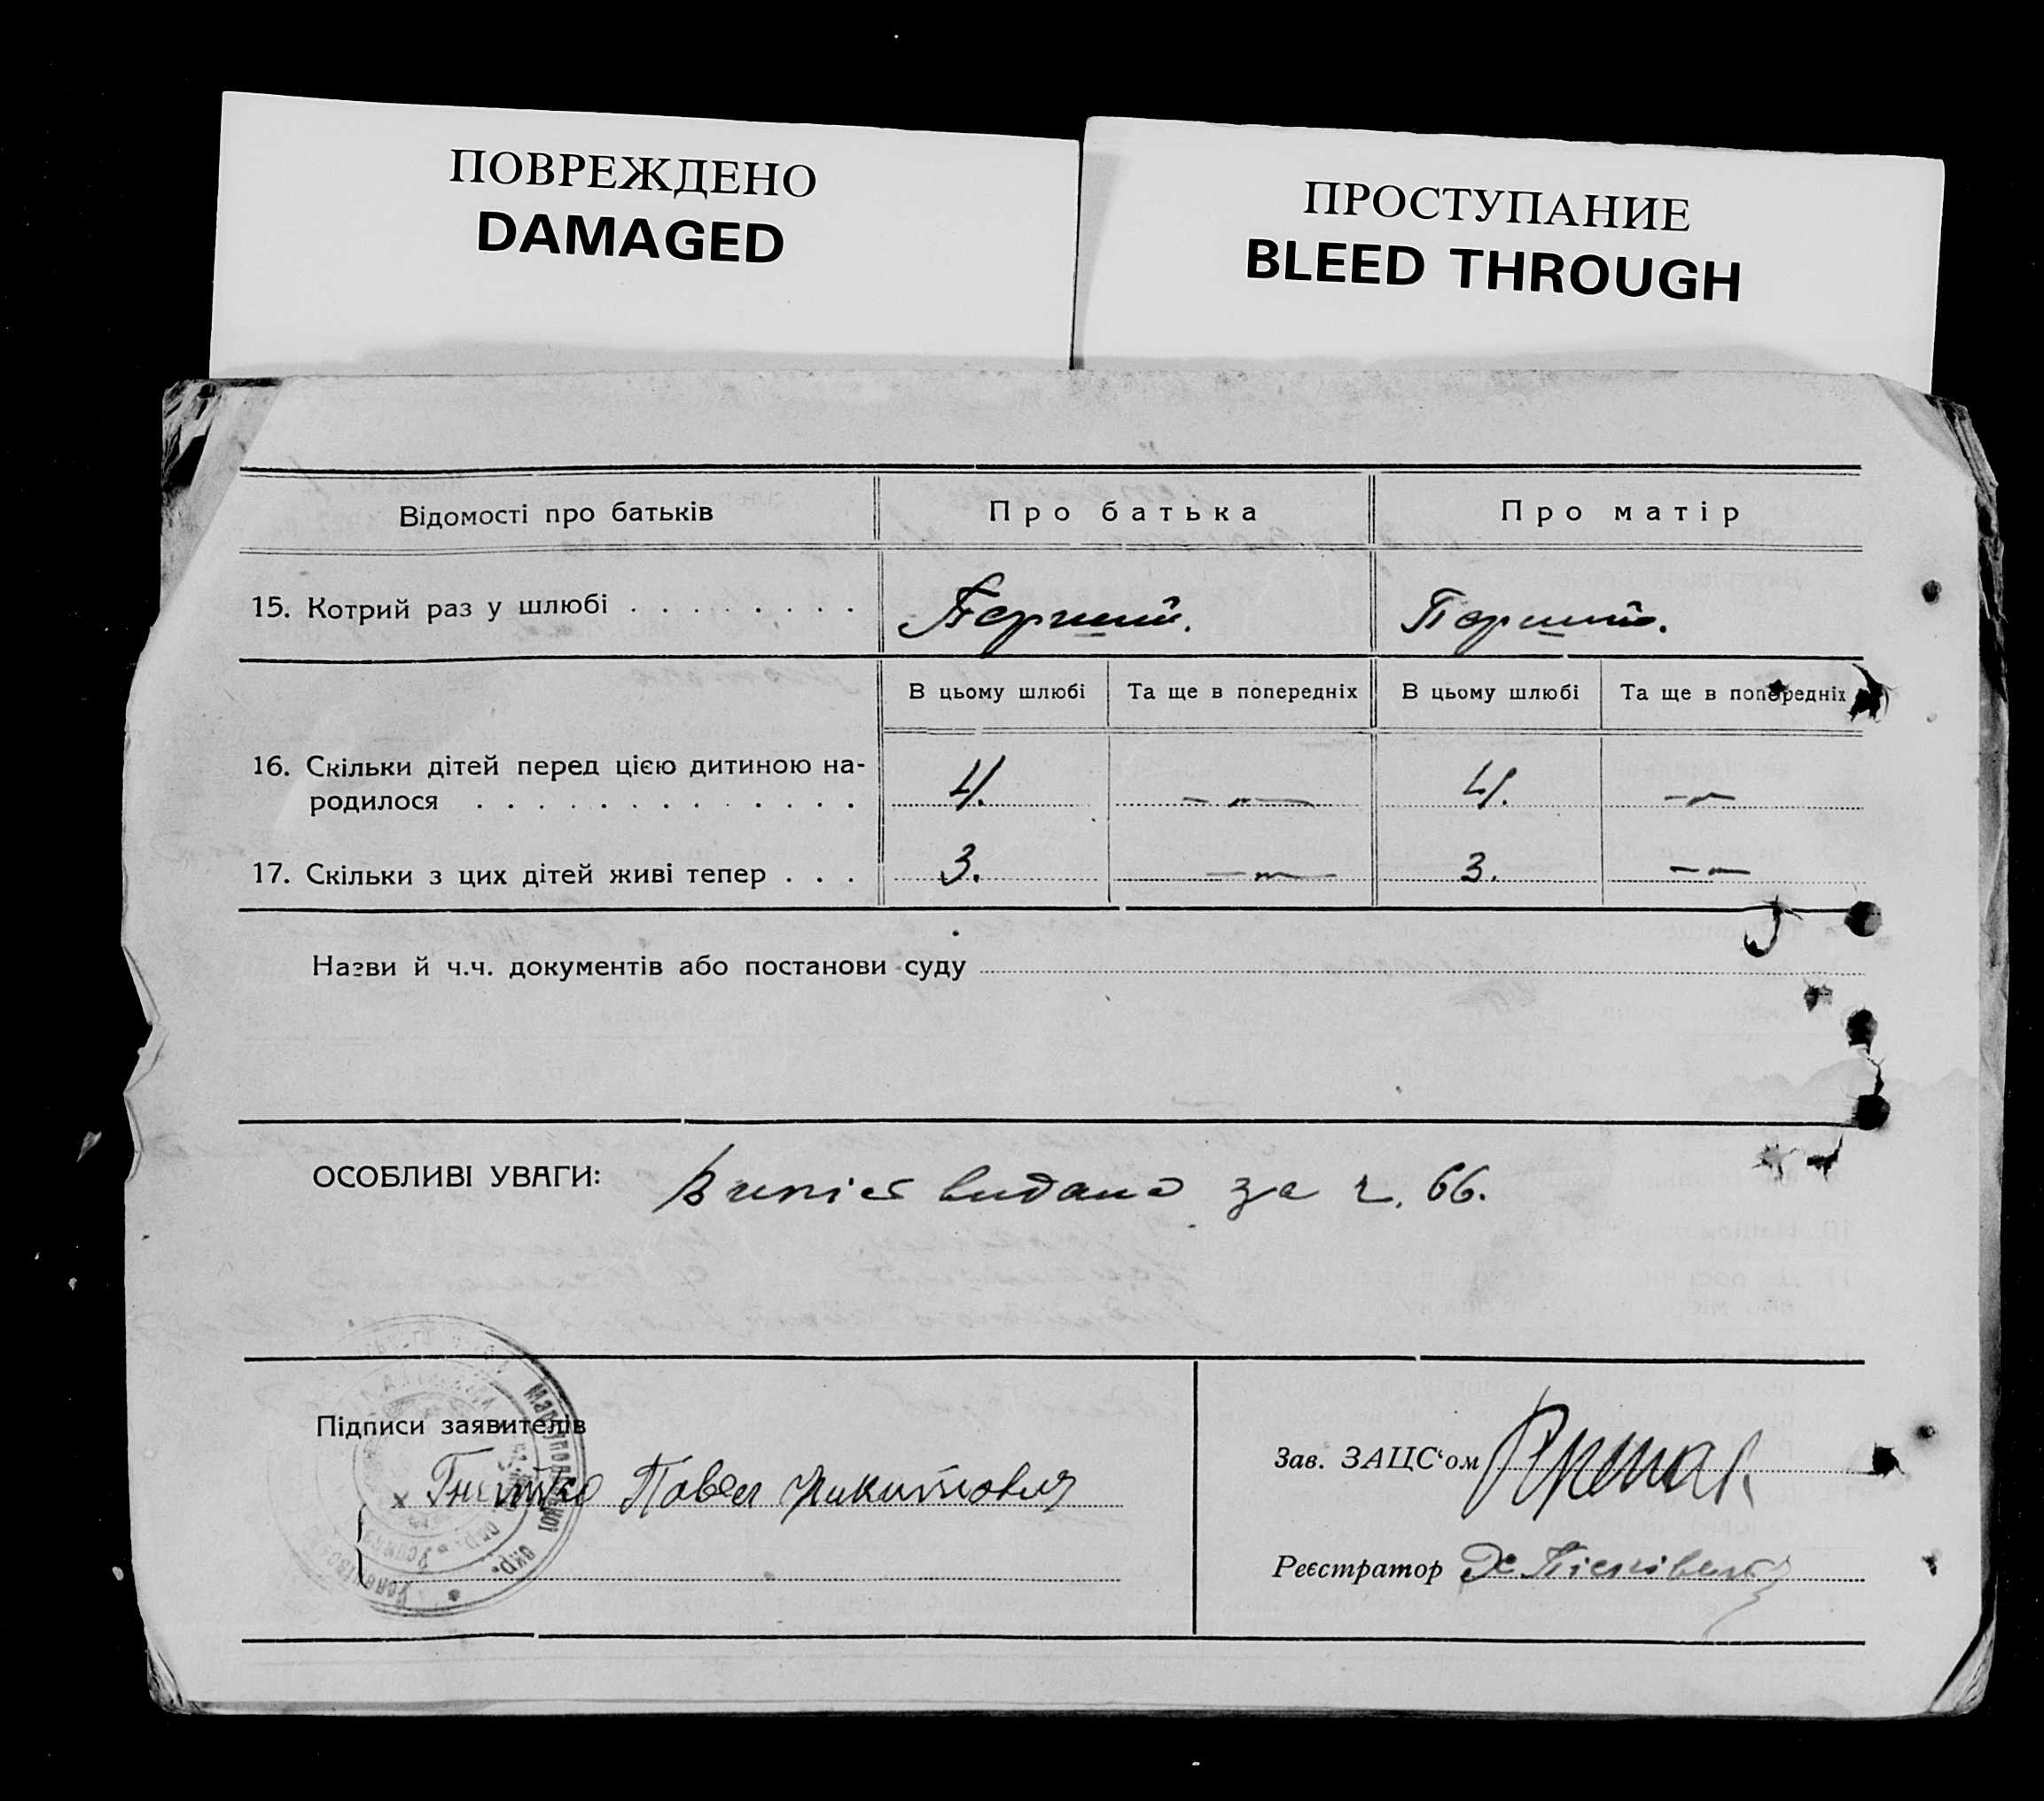 ПОВРЕЖДЕНО
DAMAGED
ПРОСТУПАНИЕ
BLEED THROUGH
Відомості про батьків
Про батька
Про матір
15. Котрий раз у шлюбі . . . . . . . .
Перший.
Перший.
В цьому шлюбі
Та ще в попередніх
В цьому шлюбі
Та ще в попередніх
16. Скільки дітей перед цією дитиною на-
родилося . . . . . . . . . . . . .
4.
— „ —
4.
— „ —
17. Скільки з цих дітей живі тепер . . .
3.
— „ —
3.
— „ —
Назви й ч.ч. документів або постанови суду
ОСОБЛИВІ УВАГИ:
Випіс видано за ч. 66.
Підписи заявителів
х Павел Никитович
Маріупольської окр.
Зав. ЗАЦС‘ом
Реєстратор